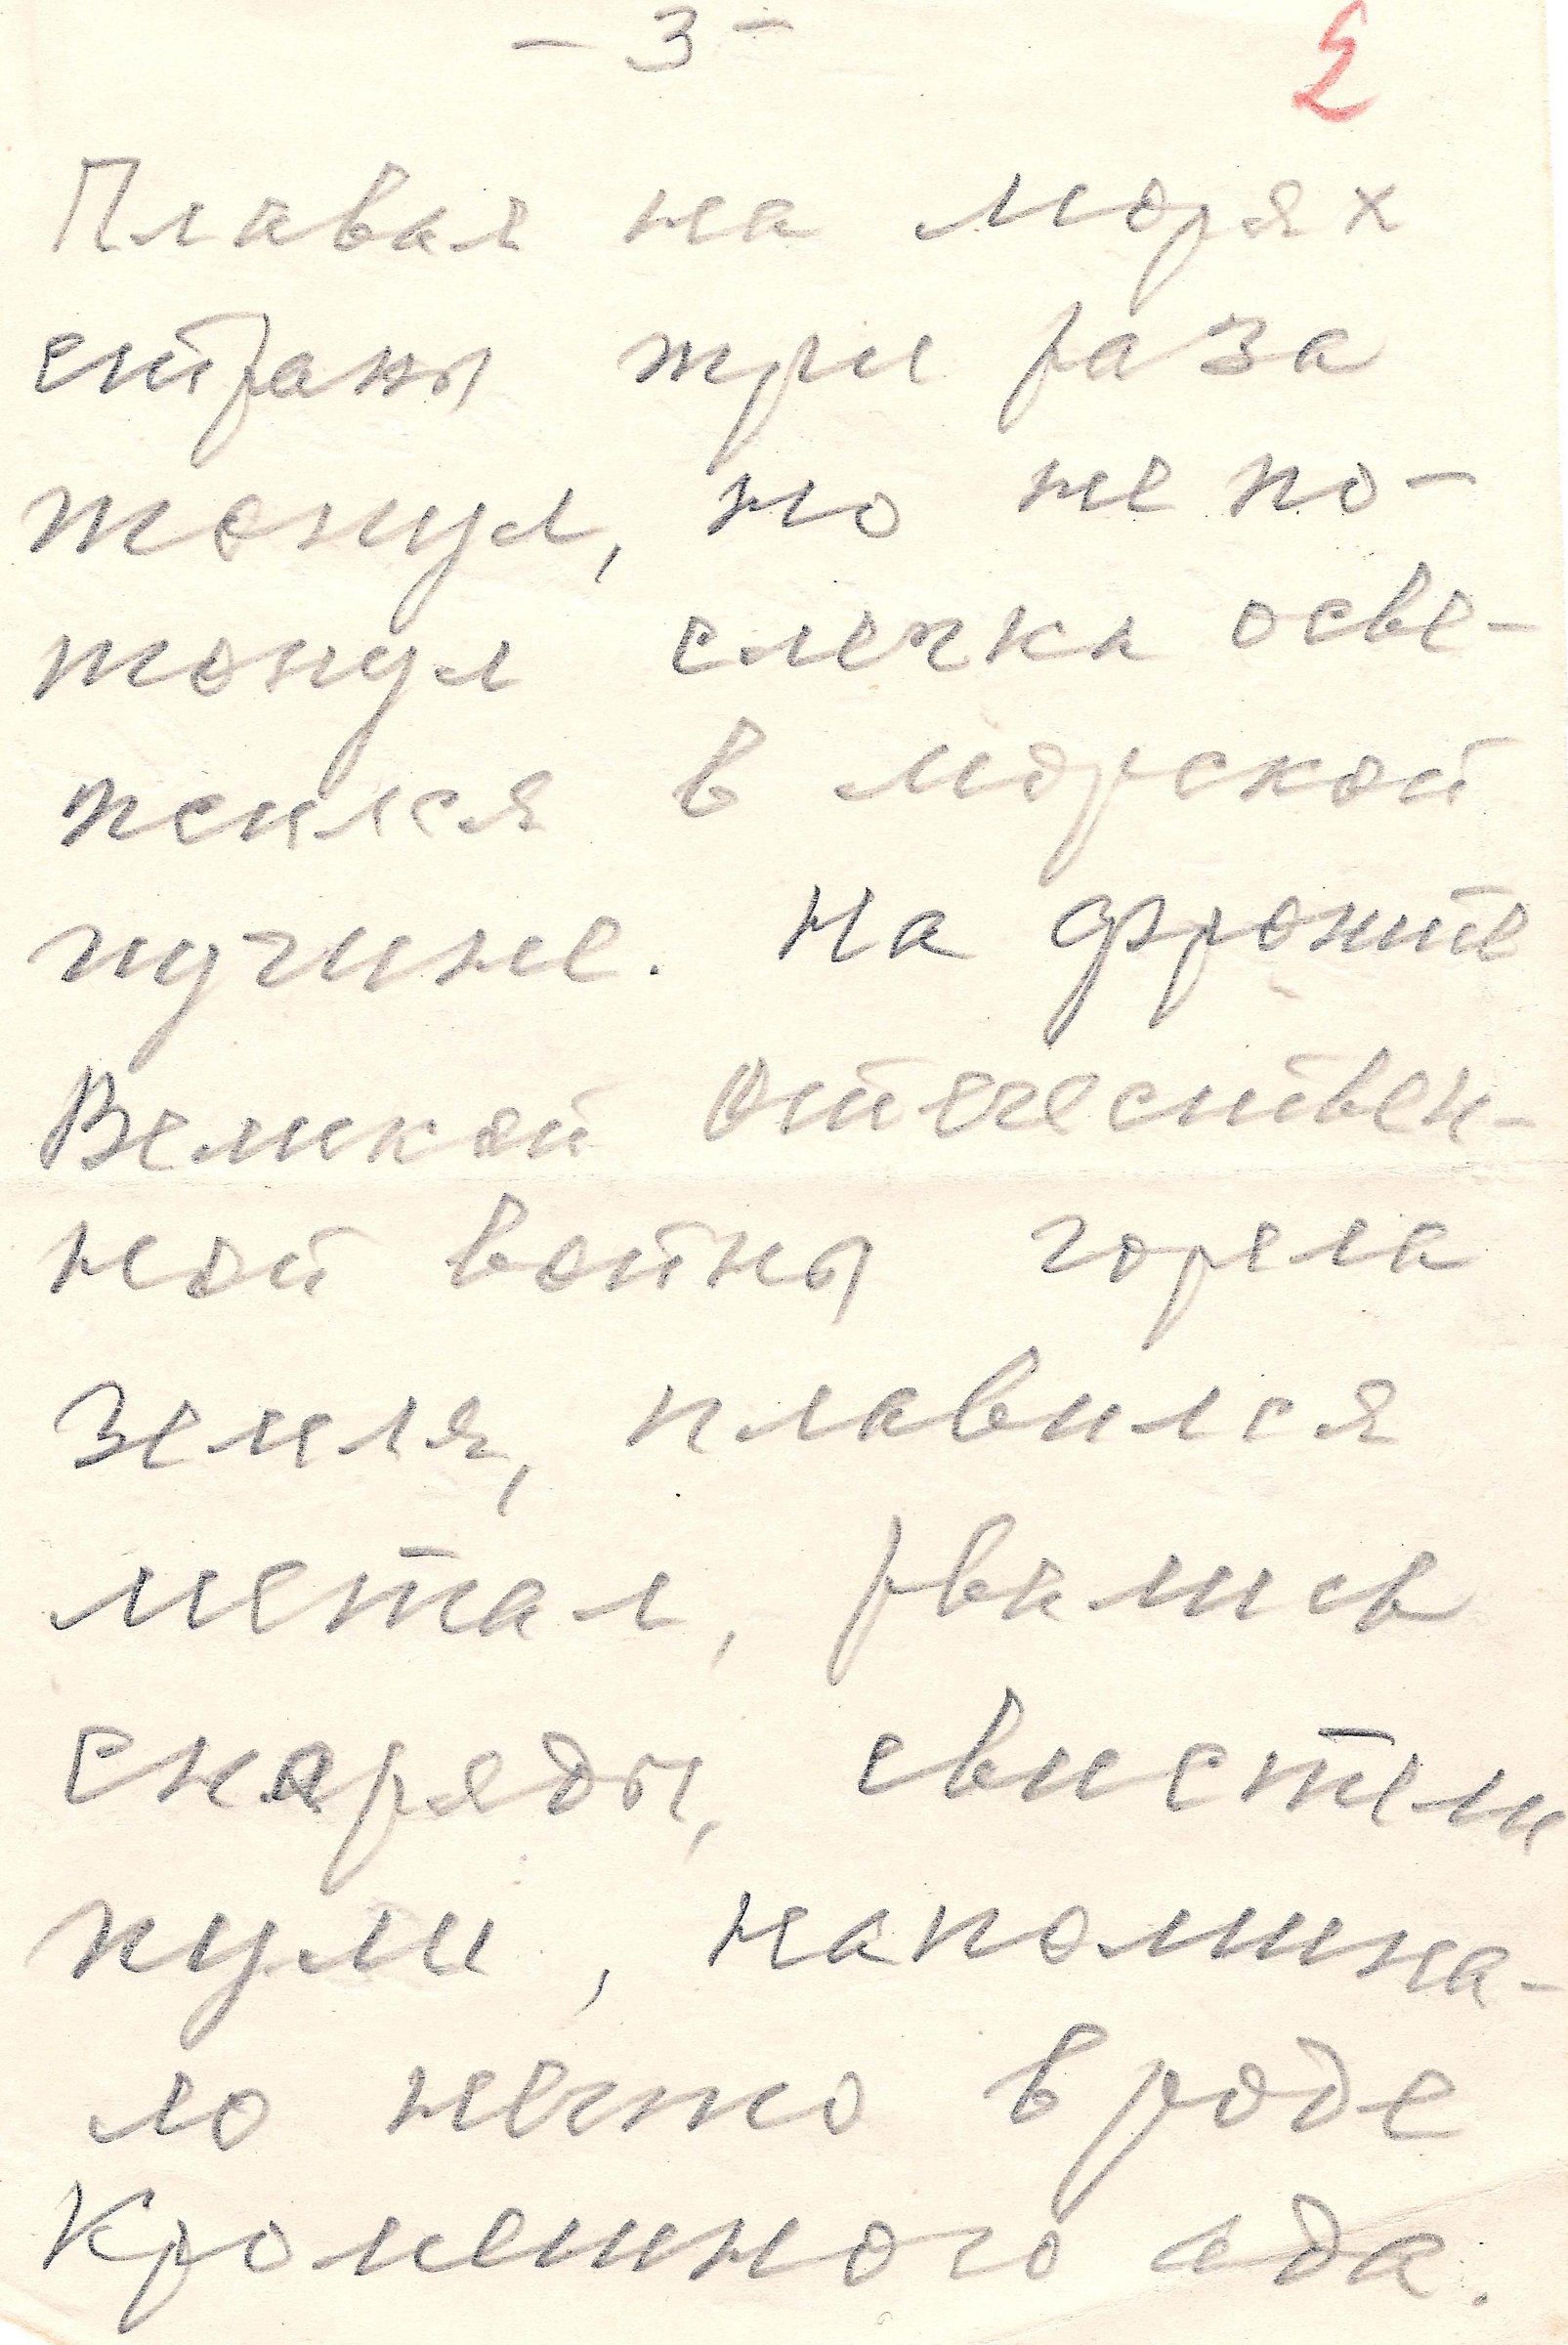 - 3 -
Плавая на морях
страны три раза
тонул, но не по-
тонул слегка осве-
жился в морской
пучине. На фронте
Великой Отечествен-
ной войны горела
земля, плавился
метал, рвались
снаряды, свистели
пули, напомина-
ло нечто вроде
Кромешного ада.